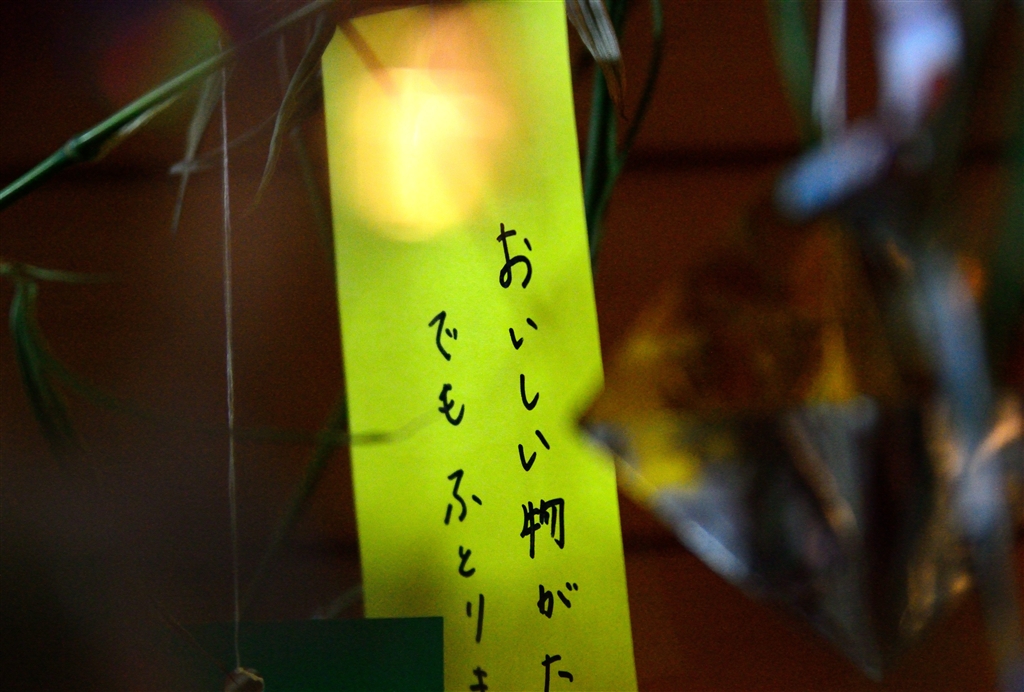 おいしい物がた
でもふとりま